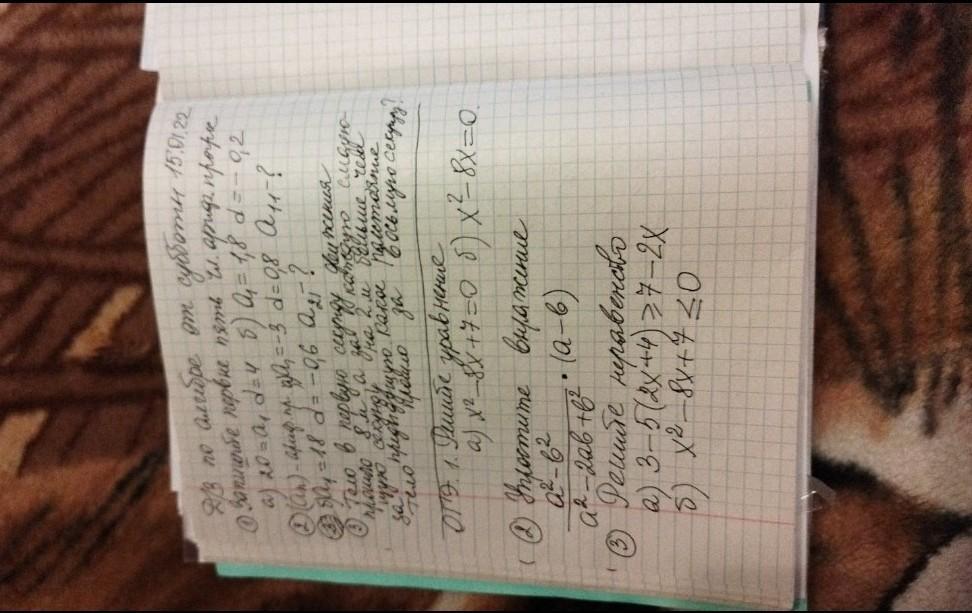 Д/З по алгебре от субботы 15.01.22
① Запишите первые пять чл. арифм. прогрес
а) 20=a₁ d=4 б) a₁=1,8 d=-0,2
② (aₙ)-ариф. пр. a₁=-3 d=0,8 a₁₁-?
a₁=18 d=-0,6 a₂₁-?
③ Тело в первую секунду движения
прошло 8 м, а за каждую следую-
щую секунду на 2 м больше чем
за предыдущую. Какое расстояние
тело прошло за восьмую секунд?
ОГЭ. 1. Решите уравнение
а) x²-8x+7=0 б) x²-8x=0.
② Упростите выражение
a²-b²
a²-2ab+b² · (a-b)
③ Решите неравенство
а) 3-5(2x+4)≥7-2x
б) x²-8x+7≤0